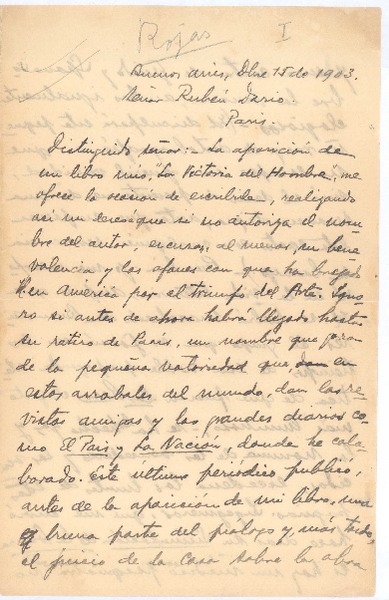 Rojas I
Buenos Aires, Dbre 15 de 1903.
Señor Rubén Dario.
Paris.
Distinguido señor:- La aparición de
un libro mio, "La Victoria del Hombre", me
ofrece la ocasión de escribirle, realizando
asi un deseo que si no autoriza el nom-
bre del autor, excusa, al menos, su bene
volencia y los afanes con que ha bregado
Vd. en América por el triunfo del Arte. Igno-
ro si antes de ahora habrá llegado hasta
su retiro de Paris, un nombre que goza
de la pequeña notoriedad que dan en
estos arrabales del mundo, dan las re-
vistas amigas y los grandes diarios co-
mo El Pais y La Nación, donde he cola
borado. Este último periodico publicó,
antes de la aparición de mi libro, una
buena parte del prólogo y más tarde,
el juicio de la casa sobre la obra